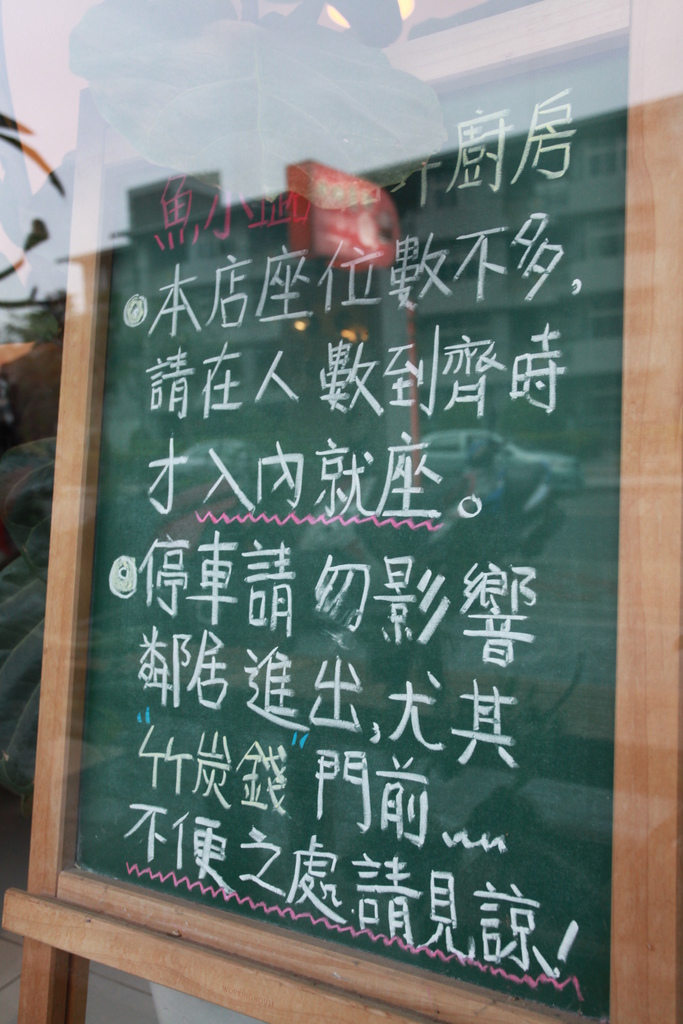 魚小 廚房
◎本店座位數不多,
請在人數到齊時
才入內就座。
◎停車請勿影響
鄰居進出,尤其
"竹炭錢"門前...
不便之處,請見諒!